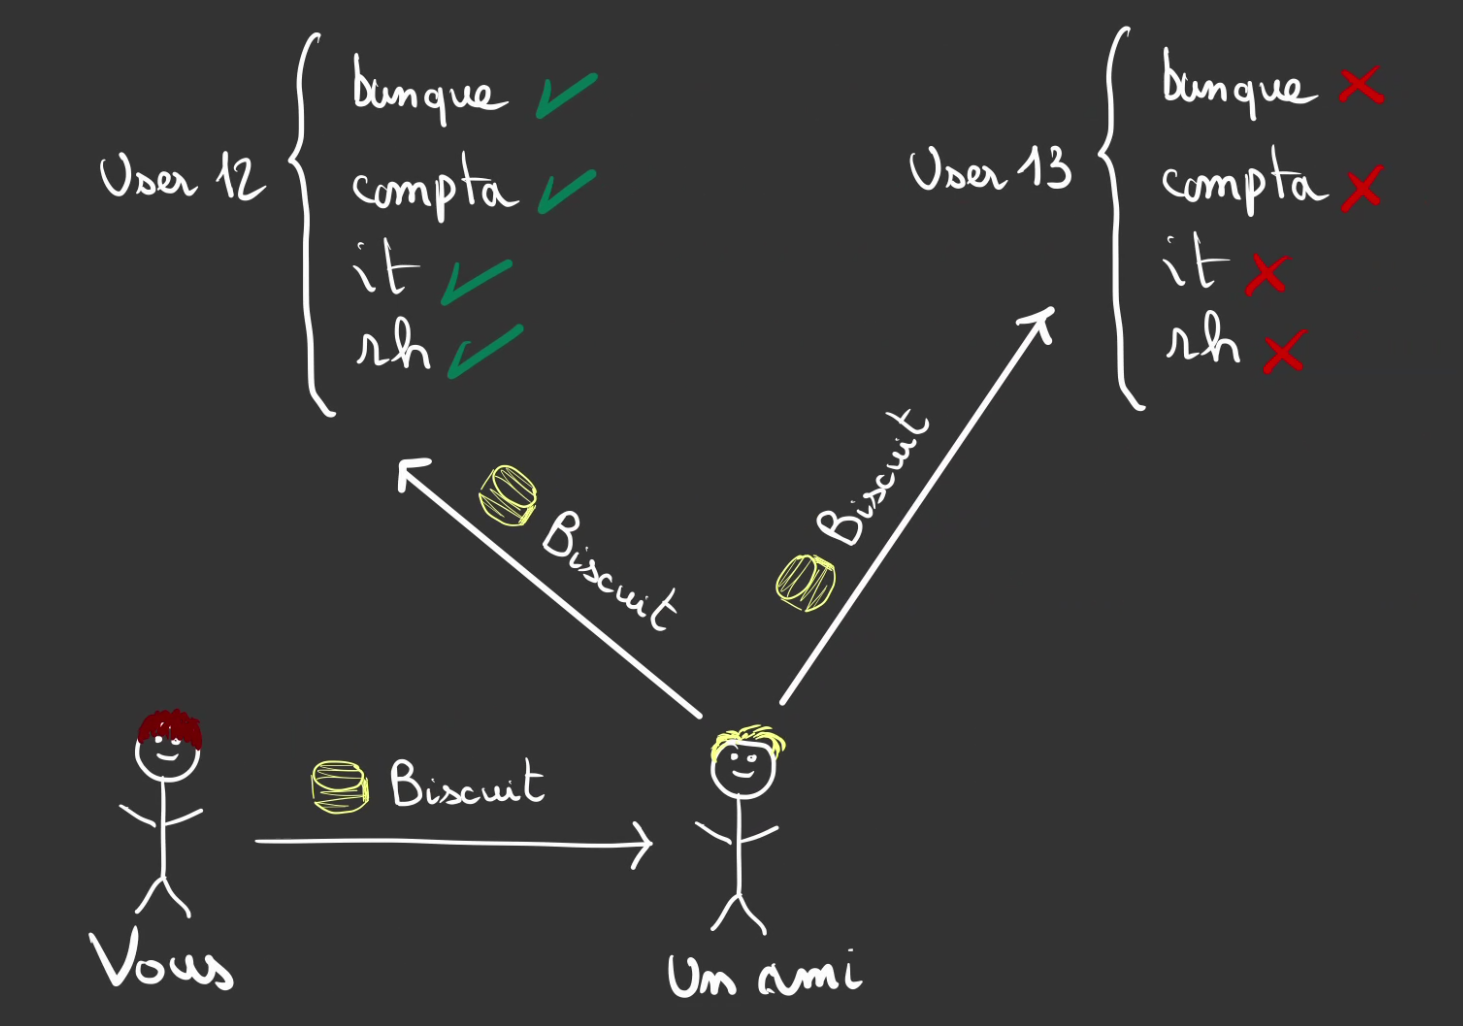 User 12
banque
compta
it
rh
User 13
banque
compta
it
rh
Biscuit
Biscuit
Biscuit
Vous
Un ami